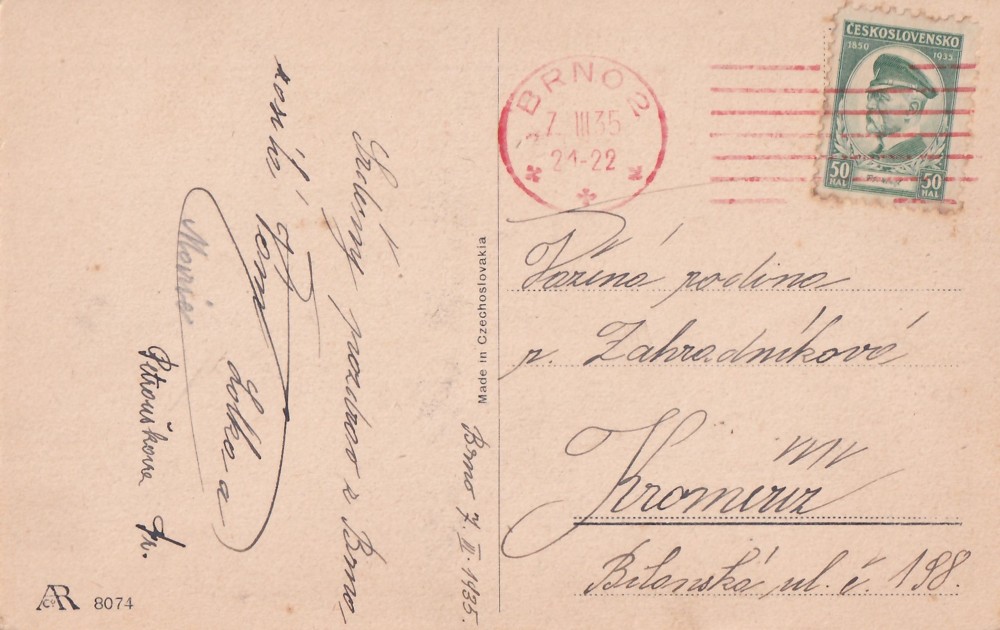 Brno 7. III. 1935.
Srdečný pozdrav z Brna
Lolka a
Marie
Petroušková Fr.
Made in Czechoslovakia
BRNO 2
7. III 35
21-22
ČESKOSLOVENSKO
1850 1935
50 HAL 50 HAL
Vážená rodina
p. Zahradníková
Kroměříž
Bílanská ul. č. 198.
AR
Co
8074